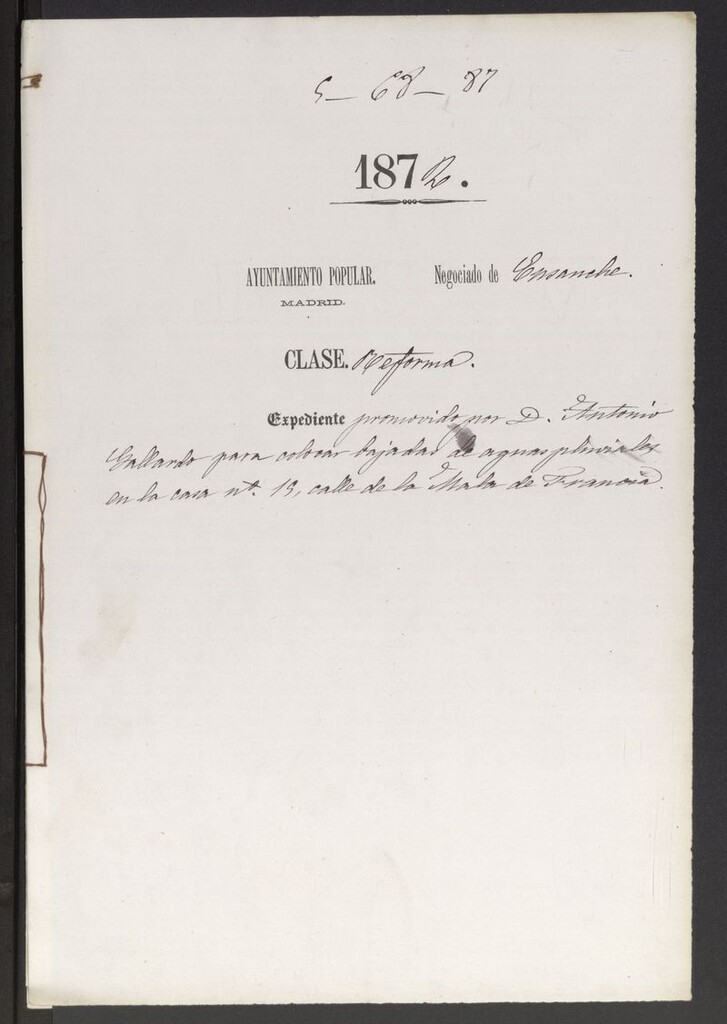 5 — 68 — 87
1872.
AYUNTAMIENTO POPULAR. Negociado de Ensanche.
MADRID.
CLASE. Reforma.
Expediente promovido por D. Antonio
Gallardo para colocar bajadas de aguas pluviales
en la casa nº. 15, calle de la Mala de Francia.